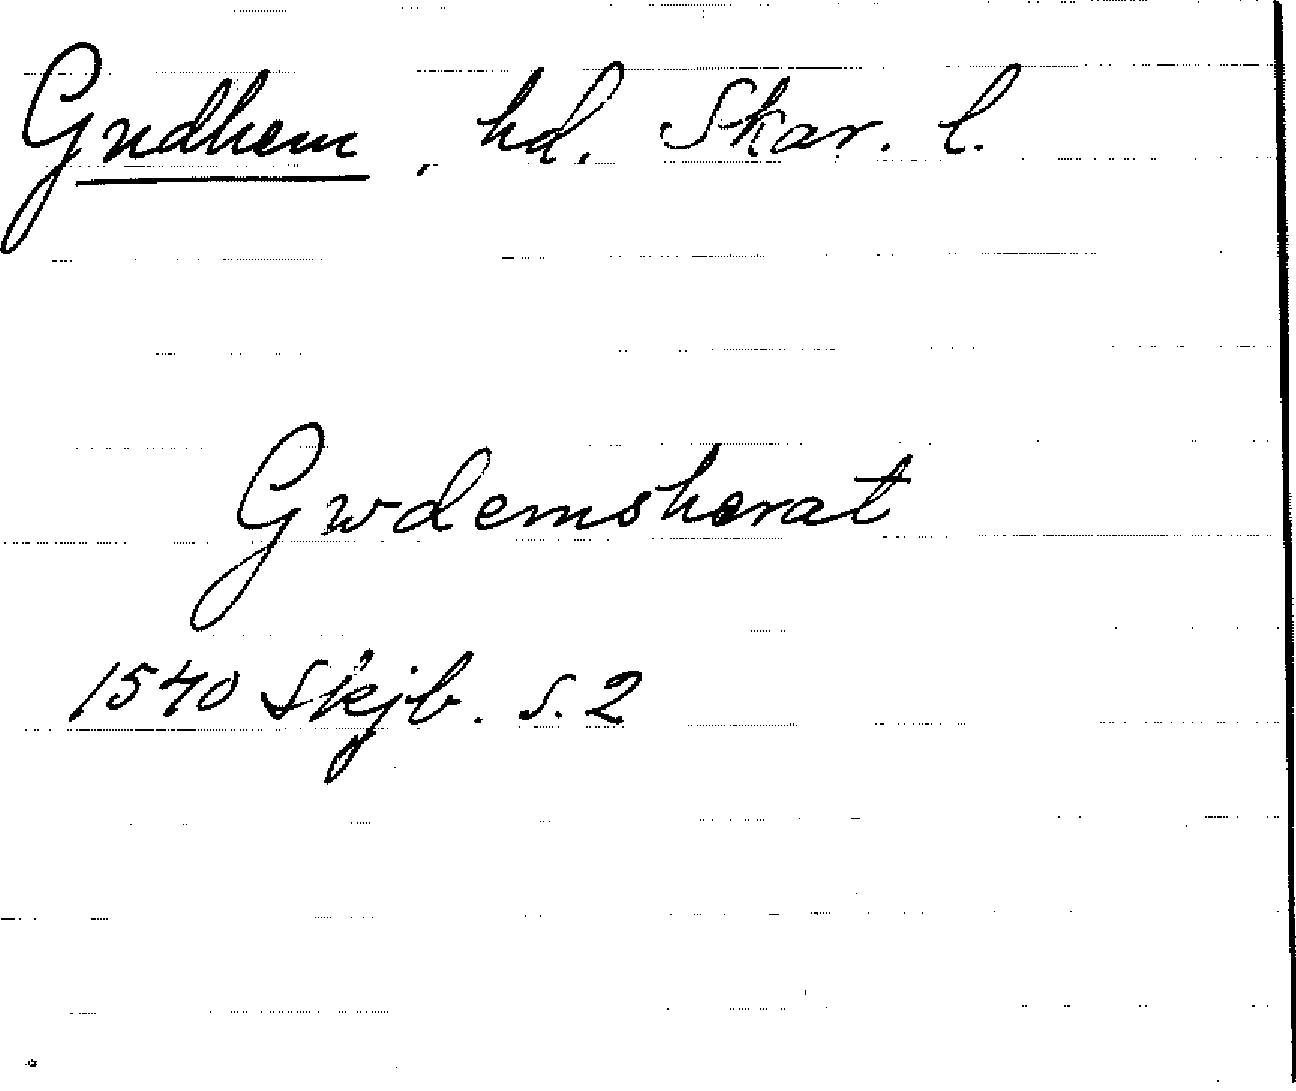 Gudhem, hd. Skar. l.
Gwdemsherat
1540 Skjb. s. 2